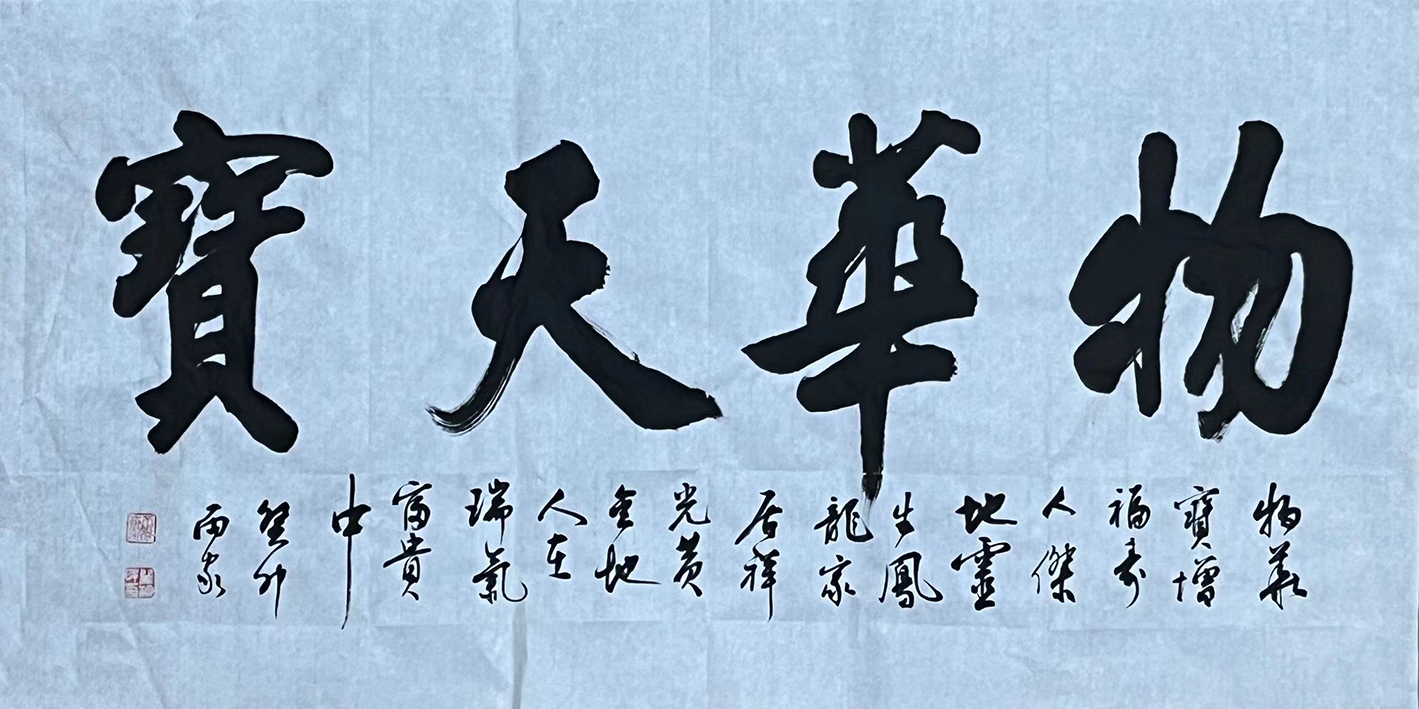 物華天寶
物華
寶增
福壽
人傑
地靈
生鳳
龍家
居祥
光黃
金地
人在
瑞氣
富貴
中
癸卯
雨家